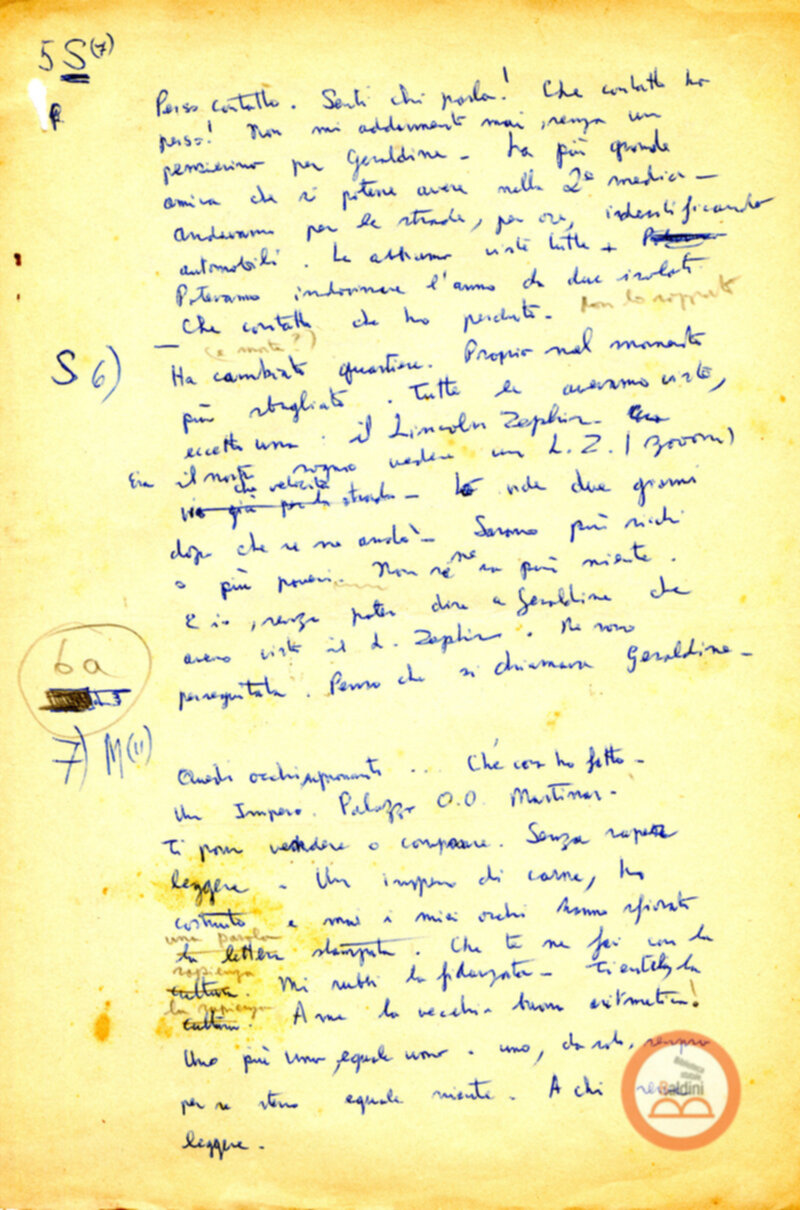 5 S (7)
Perso contatto. Senti chi parla! Che contatto ho
perso! Non mi addormento mai, senza un
pensierino per Geraldine - La più grande
amica che si potesse avere nella 2ª media -
andavamo per le strade, per ore, identificando
automobili. Le abbiamo viste tutte +
Potevamo indovinare l'anno da due isolati
Che contatto che ho perduto - non lo sopporto
(è morta?)
S 6) Ha cambiato quartiere. Proprio nel momento
più sbagliato. Tutte le avevamo viste,
eccetto una: il Lincoln Zephir -
Era il nostro sogno vedere un L. Z. (zooom)
che velocità
via giù per la strada - Lo vide due giorni
dopo che se ne andò - Saranno più ricchi
o più poveri. Non se ne sa più niente.
E io, senza poter dire a Geraldine che
avevo visto il L. Zephir. Ne sono
perseguitata. Penso che si chiamava Geraldine -
6a
7) M (11)
Questi occhi, ... Che cosa ho fatto -
Un Impero. Palazzo O.O. Martinas -
Ti posso vendere o comprare. Senza saper
leggere - Un impero di carne, ho
costruito e mai i miei occhi hanno sfiorato
una parola
la lettera stampata. Che te ne fai con la
sapienza
cultura. Mi rubi la fidanzata - Tientela
la sapienza
cultura. A me la vecchia buona aritmetica!
Uno più uno, eguale uno. uno, da solo, sempre
per se stesso eguale niente. A chi
leggere -
Biblioteca
statale
Baldini